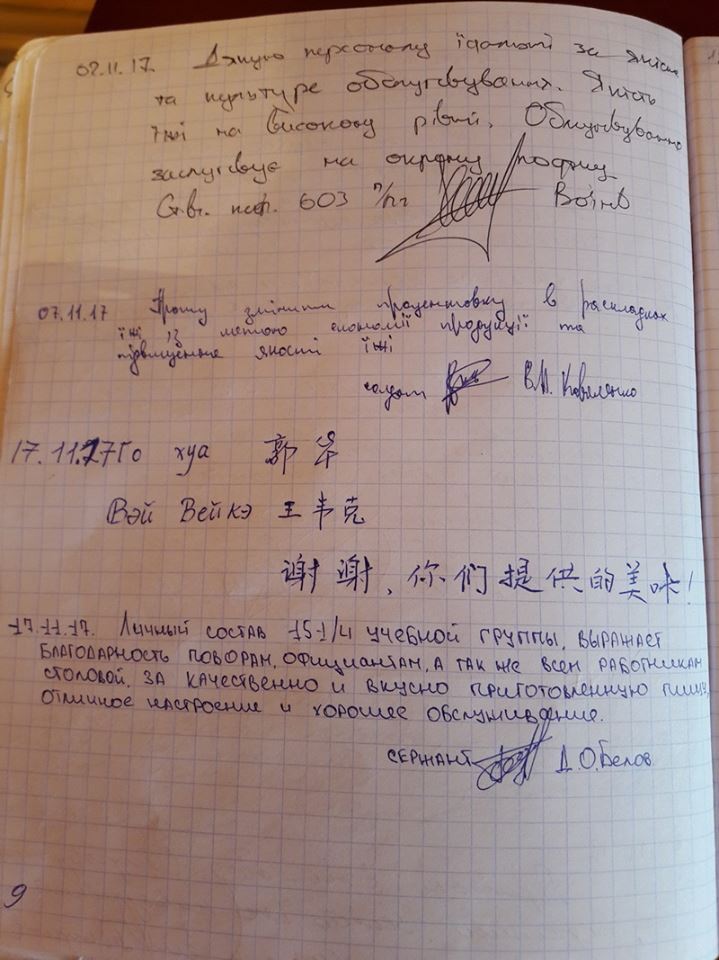 02.11.17. Дякую персоналу їдальні за якість
та культуре обслуговування. Якість
їжі на високому рівні. Обслуговування
заслуговує на окрему подяку
603
07.11.17 Прошу змінити процентовку в раскладках
їжі із метою економії продукції та
підвищення якості їжі
солдат В.М. Коваленко
17.11.17 Го хуа 郭华
Вэй Вейкэ 王韦克
谢谢，你们提供的美味！
17.11.17. Личный состав 151/4 учебной группы, выражает
благодарность поворам, официантам, а так же всем работникам
столовой, за качественно и вкусно приготовленную пищу,
отличное настроение и хорошее обслуживание.
сержант Д.О.Белов
9